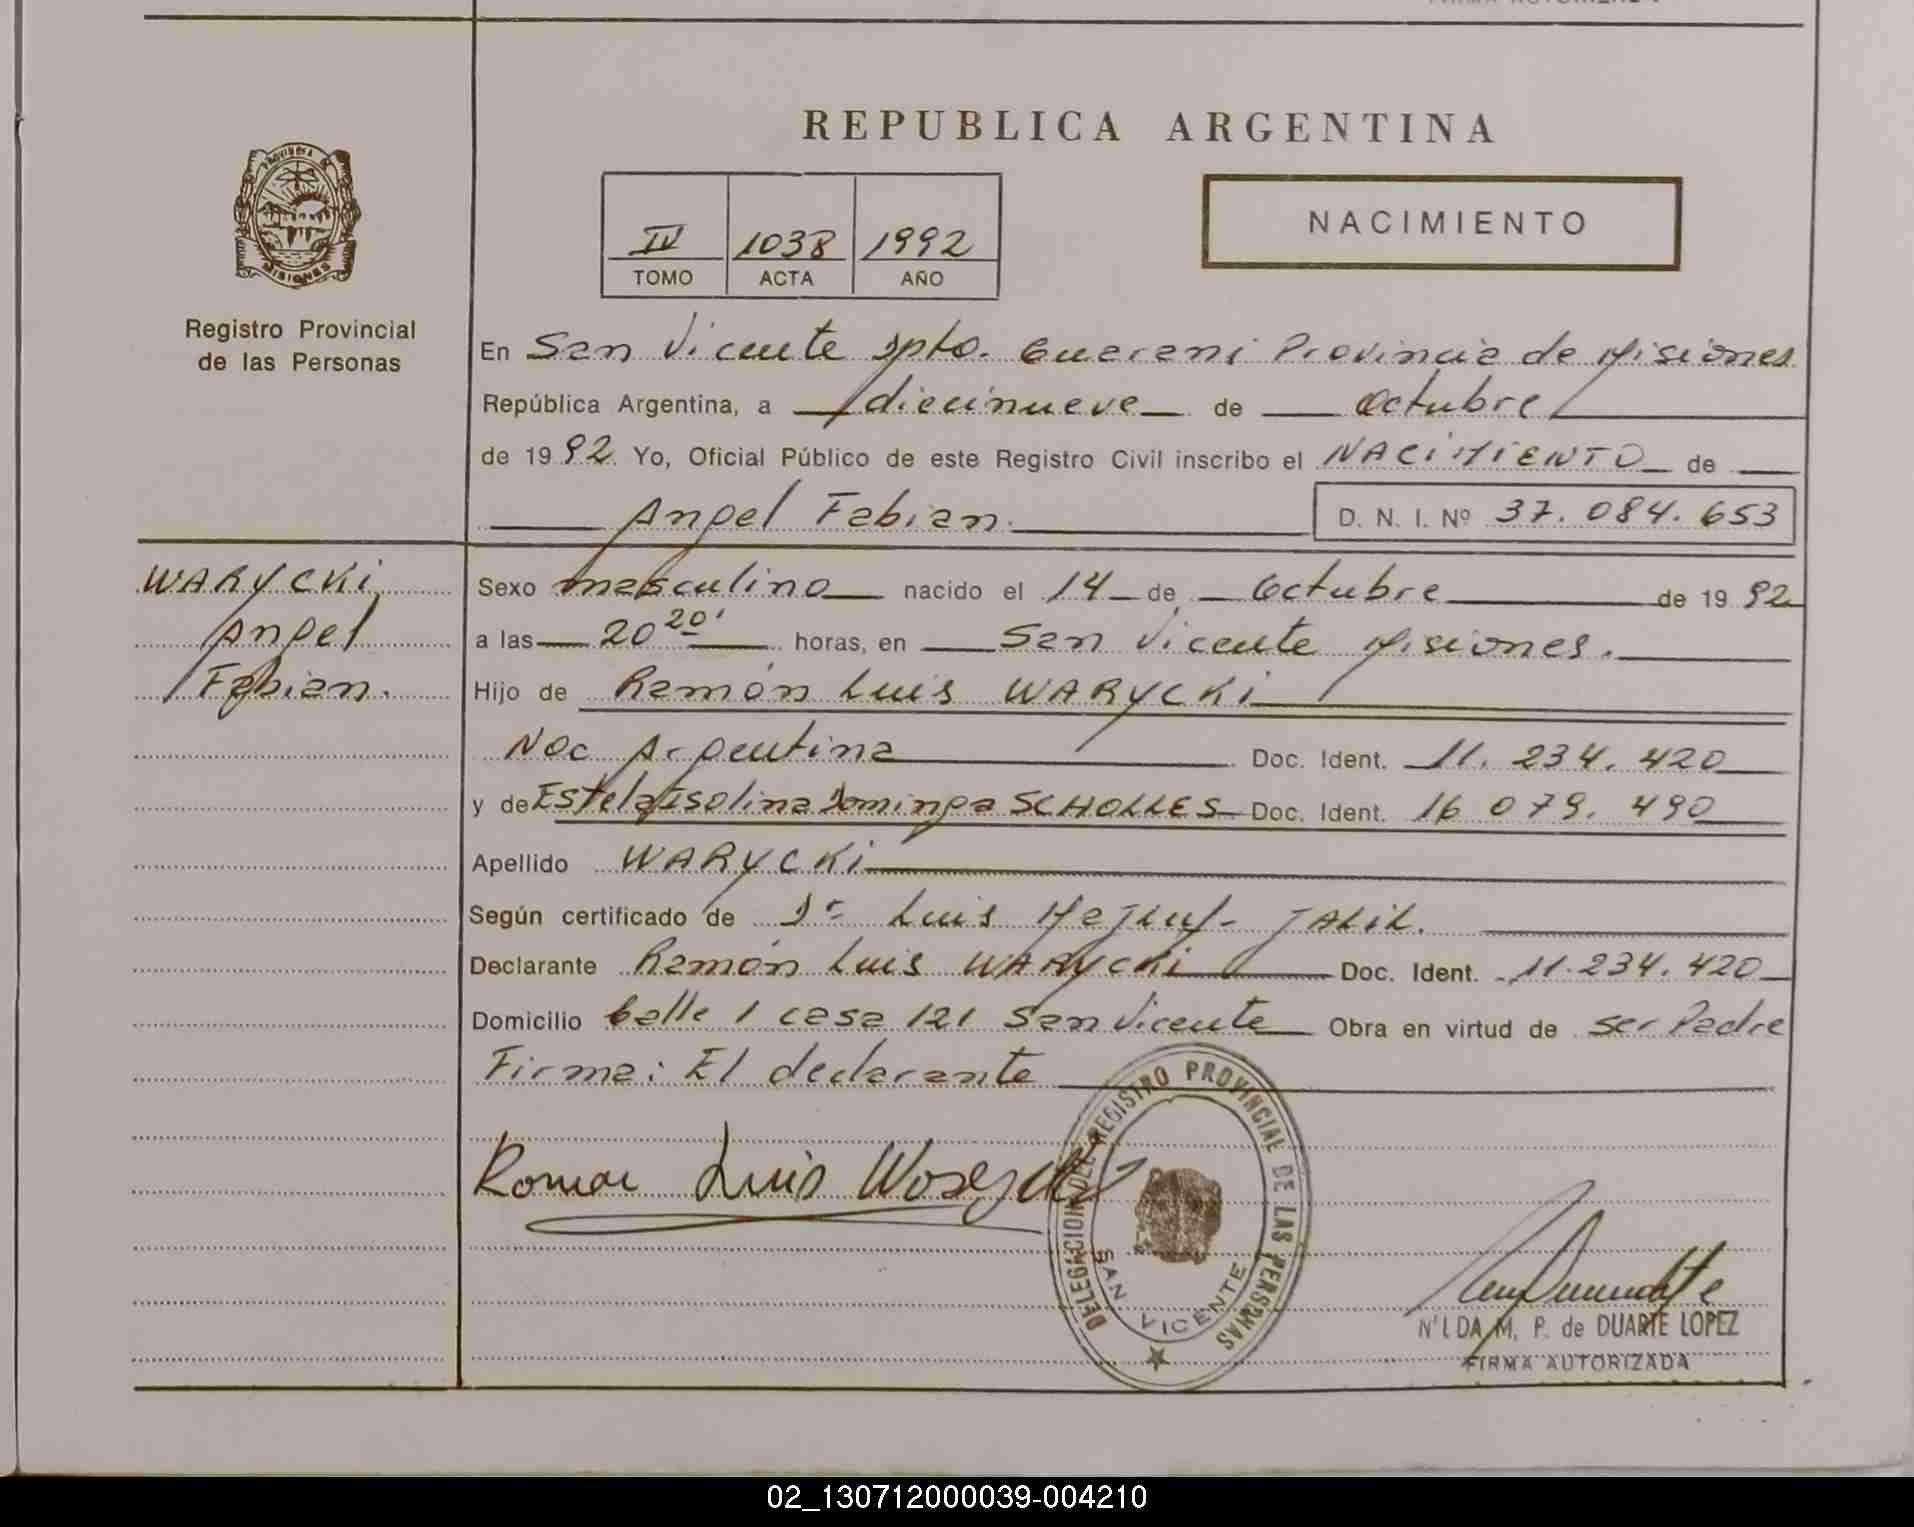 REPUBLICA ARGENTINA
PROVINCIA DE
MISIONES
Registro Provincial
de las Personas
IV 1038 1992
TOMO ACTA AÑO
NACIMIENTO
En San Vicente Dpto. Guarani Provincia de Misiones
República Argentina, a diecinueve de Octubre
de 1992. Yo, Oficial Público de este Registro Civil inscribo el NACIMIENTO de
Angel Fabian. D. N. I. Nº 37.084.653
WARYCKI
Angel
Fabian.
Sexo masculino nacido el 14 de Octubre de 1992
a las 20 20' horas, en San Vicente Misiones.
Hijo de Ramón Luis WARYCKI
Nac Argentina Doc. Ident. 11.234.420
y de Estela Isolina Dominga SCHOLLES Doc. Ident. 16 079.490
Apellido WARYCKI
Según certificado de Dr Luis JALIL.
Declarante Ramón Luis WARYCKI Doc. Ident. 11.234.420
Domicilio Calle 1 casa 121 San Vicente Obra en virtud de ser Padre
Firma: El declarante
Luis
DELEGACION DEL REGISTRO PROVINCIAL DE LAS PERSONAS
SAN VICENTE
N'LDA M. P. de DUARTE LOPEZ
FIRMA AUTORIZADA
02_130712000039-004210